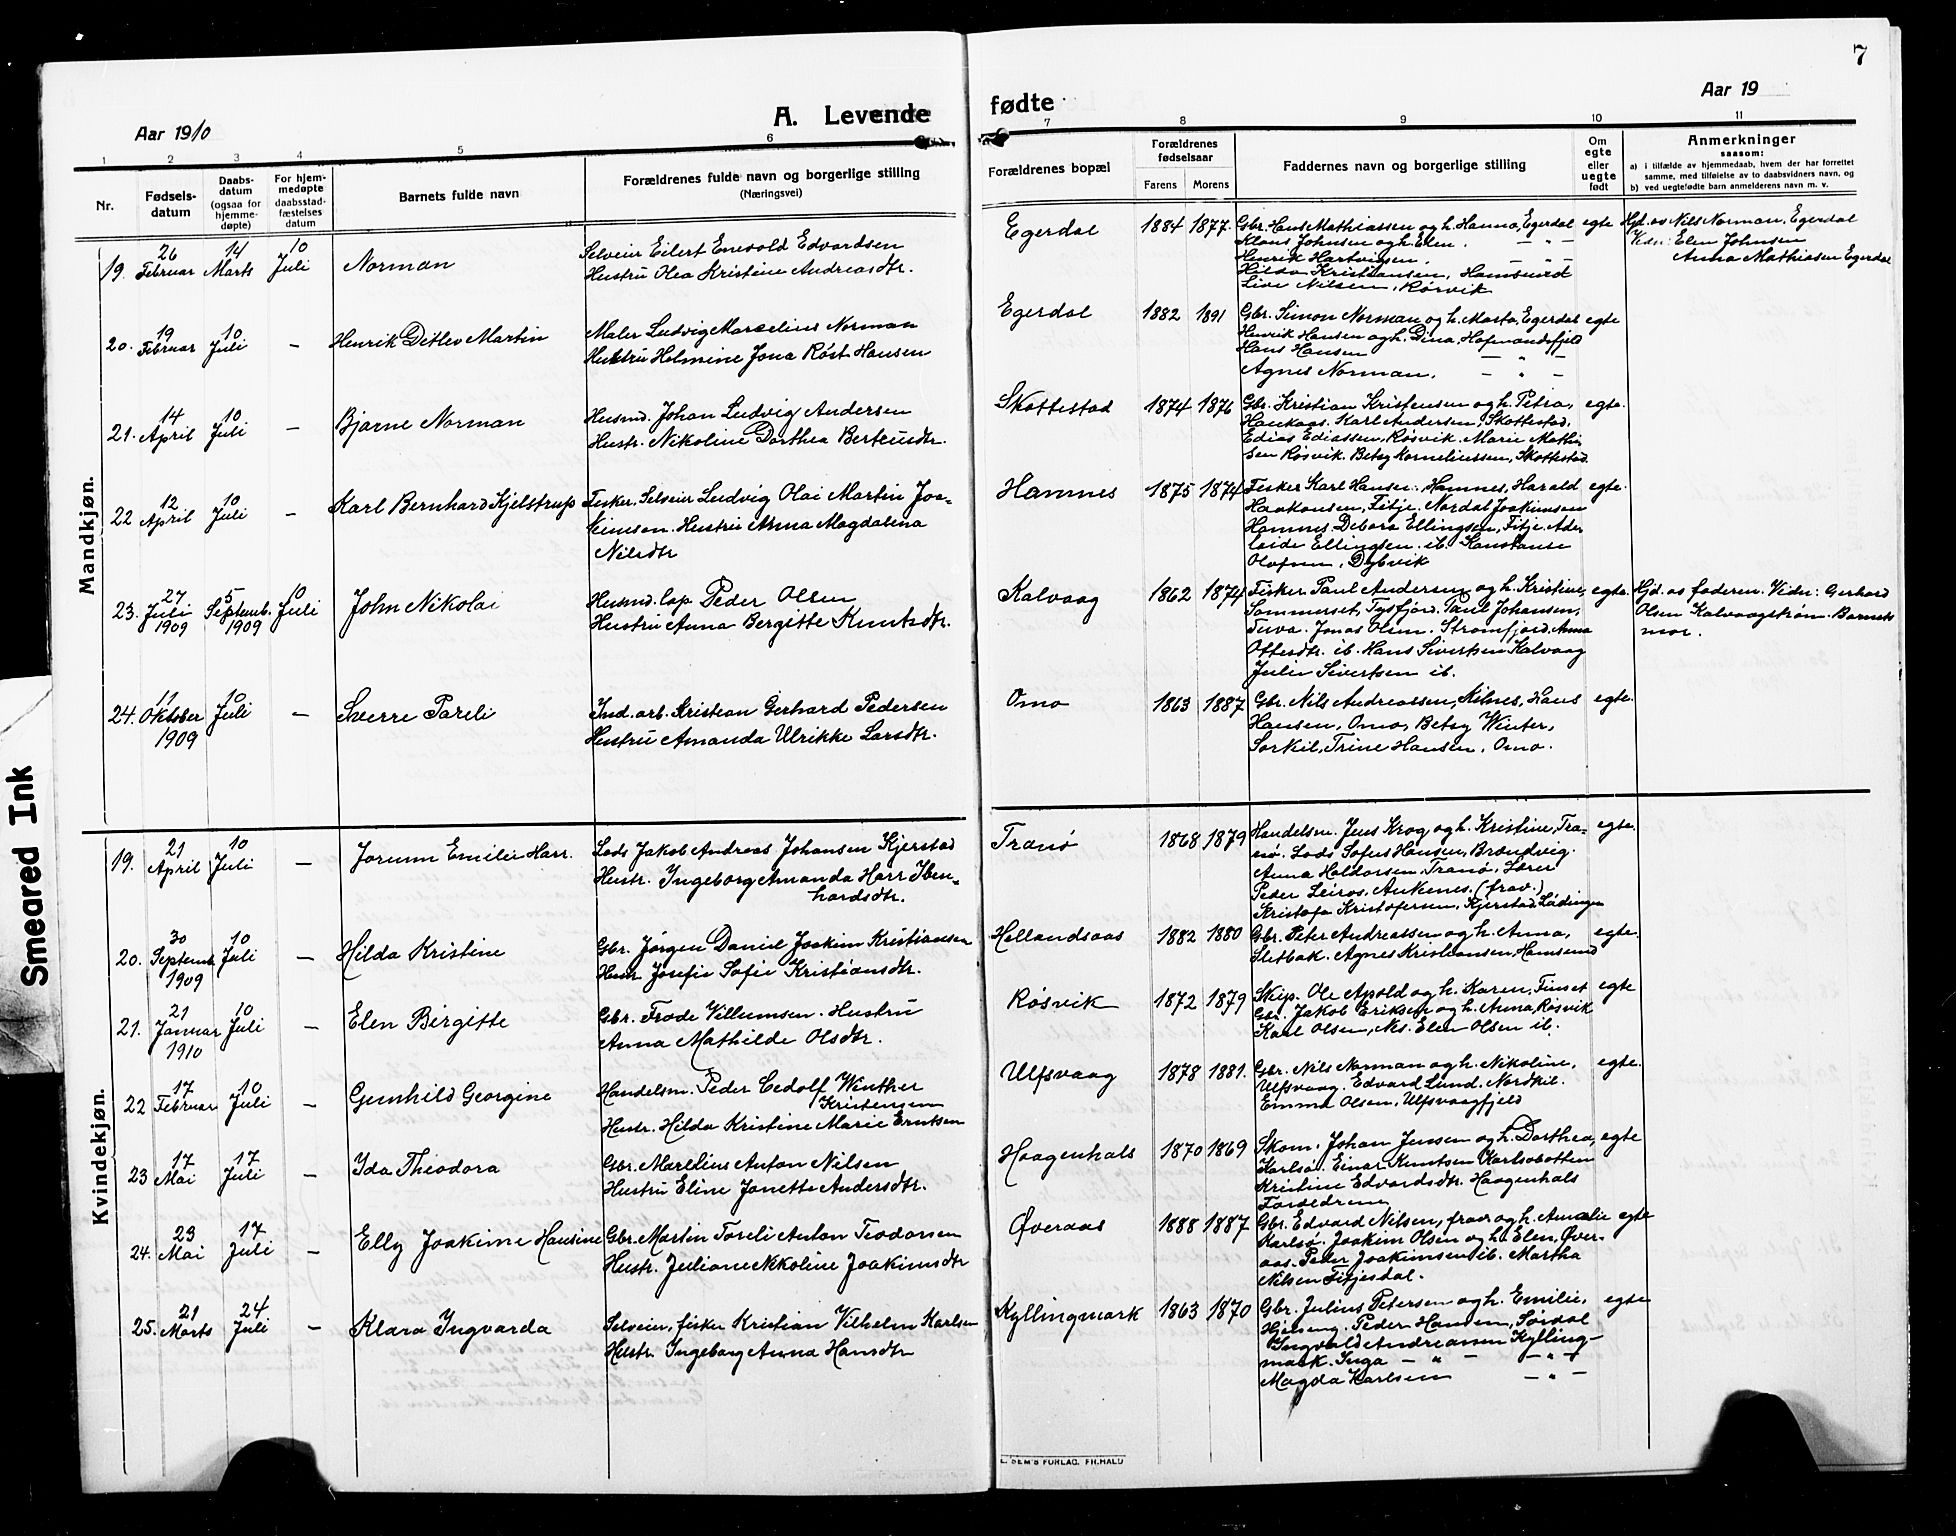 7
Aar 1910
A. Levende fødte
Aar 19
1 2 3 4 5 6 7 8 9 10 11
Nr.
Fødsels-
datum
Daabs-
datum
(ogsaa for
hjemme-
døpte)
For hjem-
medøpte
daabsstad-
fæstelses
datum
Barnets fulde navn
Forældrenes fulde navn og borgerlige stilling
(Næringsvei)
Forældrenes bopæl
Forældrenes
fødselsaar
Farens Morens
Faddernes navn og borgerlige stilling
Om
egte
eller
uegte
født
Anmerkninger
saasom:
a) i tilfælde av hjemmedaab, hvem der har forrettet
samme, med tilføielse av to daabsvidners navn, og
b) ved uegtefødte barn anmelderens navn m. v.
Mandkjøn.
19. 26 Februar 14 Marts 10 Juli Norman
Selveier Eilert Enevold Edvardsen
Hustru Olea Kristine Andreasdtr.
Egerdal 1884 1877.
Gbr. Hans Mathiassen og h. Hanna, Egerdal egte
Klaus Johnsen og h. Elen. — " —
Henrik Hartvigsen. — " —
Hilda Kristiansen, Hamsund
Live Nilsen, Rösvik
Hjd. av Nils Norman, Egerdal
Vidn: Elen Johnsen
Anna Mathiasen Egerdal
20. 19 Februar 10 Juli — Henrik Ditlev Martin
Maler Ludvig Marselius Norman
Hustru Helmine Jona Röst Hansen
Egerdal 1882 1891
Gbr. Simon Norman og h. Marta, Egerdal egte
Henrik Hansen og h. Dina, Hafmandsfjeld
Hans Hansen — " —
Agnes Norman. — " —
21. 14 April 10 Juli — Bjarne Norman
Husmd. Johan Ludvig Andersen
Hustr. Nikoline Dorthea Berteusdtr.
Skottestad 1874 1876
Gbr. Kristian Kristensen og h. Petra, egte.
Haukaas. Karl Andersen, Skottestad.
Edias Ediassen, Røsvik. Marie Mathi
sen Røsvik. Betsy Korneliussen, Skottestad.
22 12 April 10 Juli — Karl Bernhard Kjelstrup
Fisker, Selveier Ludvig Olai Martin Joa-
kimsen. Hustru Anna Magdalena
Nilsdtr
Hamnes 1875 1874
Fisker Karl Hansen. Hamnes, Harald egte.
Haakonsen, Fitje. Nordal Joakimsen
Hamnes. Debora Ellingsen, Fitje. Ade
laide Ellingsen. ib. Konstanse
Olofsen, Dybvik
23. 27 Juli 1909 5 Septemb. 1909 10 Juli John Nikolai
Husmd. lap Peder Olsen
Hustru Anna Bergitte Knutsdtr.
Kalvaag 1862 1874
Fisker Paul Andersen og h. Kristine, egte.
Sommerset, Tysfjord. Paul Johansen,
Tuva. Jonas Olsen. Strömfjord. Anna
Ottesdtr. ib. Hans Sivertsen Kalvaag
Julie Sivertsen ib.
Hjd. av faderen. Vidn: Gerhard
Olsen Kalvaagström. Barnets
mor.
24. 11 Oktober 1909 10 Juli — Sverre Pareli
Ind. arb. Kristian Gerhard Pedersen
Hustru Amanda Ulrikke Larsdtr.
Omo 1863 1887
Gbr. Nils Andreassen, Nilnes, Hans egte.
Hansen, Omo, Betsy Winter,
Sørkil, Trine Hansen, Omo.
Kvindekjøn.
19. 21 April 10 Juli — Jorunn Emilie Harr.
Lods Jakob Andreas Johansen Kjerstad
Hustr. Ingeborg Amanda Harr Iben-
hardsdtr.
Tranø 1868 1879
Handelsm. Jens Krog og h. Kristine, Tra- egte.
nø. Lods Sofus Hansen, Brændvig.
Anna Haldorsen, Tranø. Lærer
Peder Leiros, Ankenes. (frav.)
Kristofa Kristofersen, Kjerstad, Lödingen
20. 30 Septemb 1909 10 Juli — Hilda Kristine
Gbr. Jörgen Daniel Joakim Kristiansen
Hustr. Josefie Sofie Kristiansdtr.
Hellandsaas 1882 1880
Gbr. Peter Andreassen og h. Anna, egte.
Sletbak. Agnes Kristiansen, Hamsund
21. 21 Januar 1910 10 Juli — Elen Birgitte
Gbr. Frode Villumsen. Hustru
Anna Mathilde Olsdtr.
Røsvik 1872 1879
Skip. Ole Apold og h. Karen, Finset egte
Gbr. Jakob Eriksen og h. Anna, Røsvik
Karl Olsen, Nes. Elen Olsen ib.
22 17 Februar 10 Juli — Gunhild Georgine
Handelsm. Peder Cedolf Winther
Kristensen
Hustr. Hilda Kristine Marie Erntsen
Ulfsvaag 1878 1881.
Gbr. Nils Norman og h. Nikoline, egte.
Ulfsvaag. Edvard Lund. Nordkil.
Emma Olsen, Ulfsvaagfjeld
23 17 Mai 17 Juli — Ida Theodora
Gbr. Marelius Anton Nilsen
Hustru Eline Janette Andersdtr.
Haagenhals 1870 1869
Skom. Johan Jensen og h. Dorthea, egte
Karlsö. Einar Knutsen Karlsobotten
Kristine Edvardsdtr. Haagenhals
Foreldrene
24. 23 Mai 17 Juli — Elly Joakime Hansine
Gbr. Martin Toreli Anton Teodorsen
Hustr. Juliane Nikoline Joakimsdtr
Øveraas 1888 1887
Gbr. Edvard Nilsen, frav og h. Amalie egte
Karlsö. Joakim Olsen og h. Elen, Øver-
aas. Peder Joakimsen ib. Martha
Nilsen Fitjesdal.
25. 21 Marts 24 Juli — Klara Ingvarda
Selveier, fisker Kristian Vilhelm Karlsen
Hustr. Ingeborg Anna Hansdtr
Kyllingmark 1863 1870
Gbr. Julius Petersen og h. Emilie, egte
Hjelseng. Peder Hansen, Sørdal
Ingvald Andreassen Kylling-
mark. Inga — " — — " —
Magda Karlsen — " —
E. SEM'S FORLAG, FR.HALD
Smeared Ink